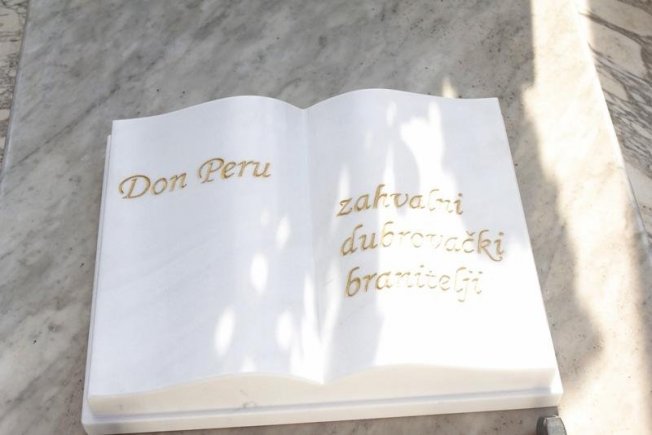 Don Peru
zahvalni
dubrovački
branitelji